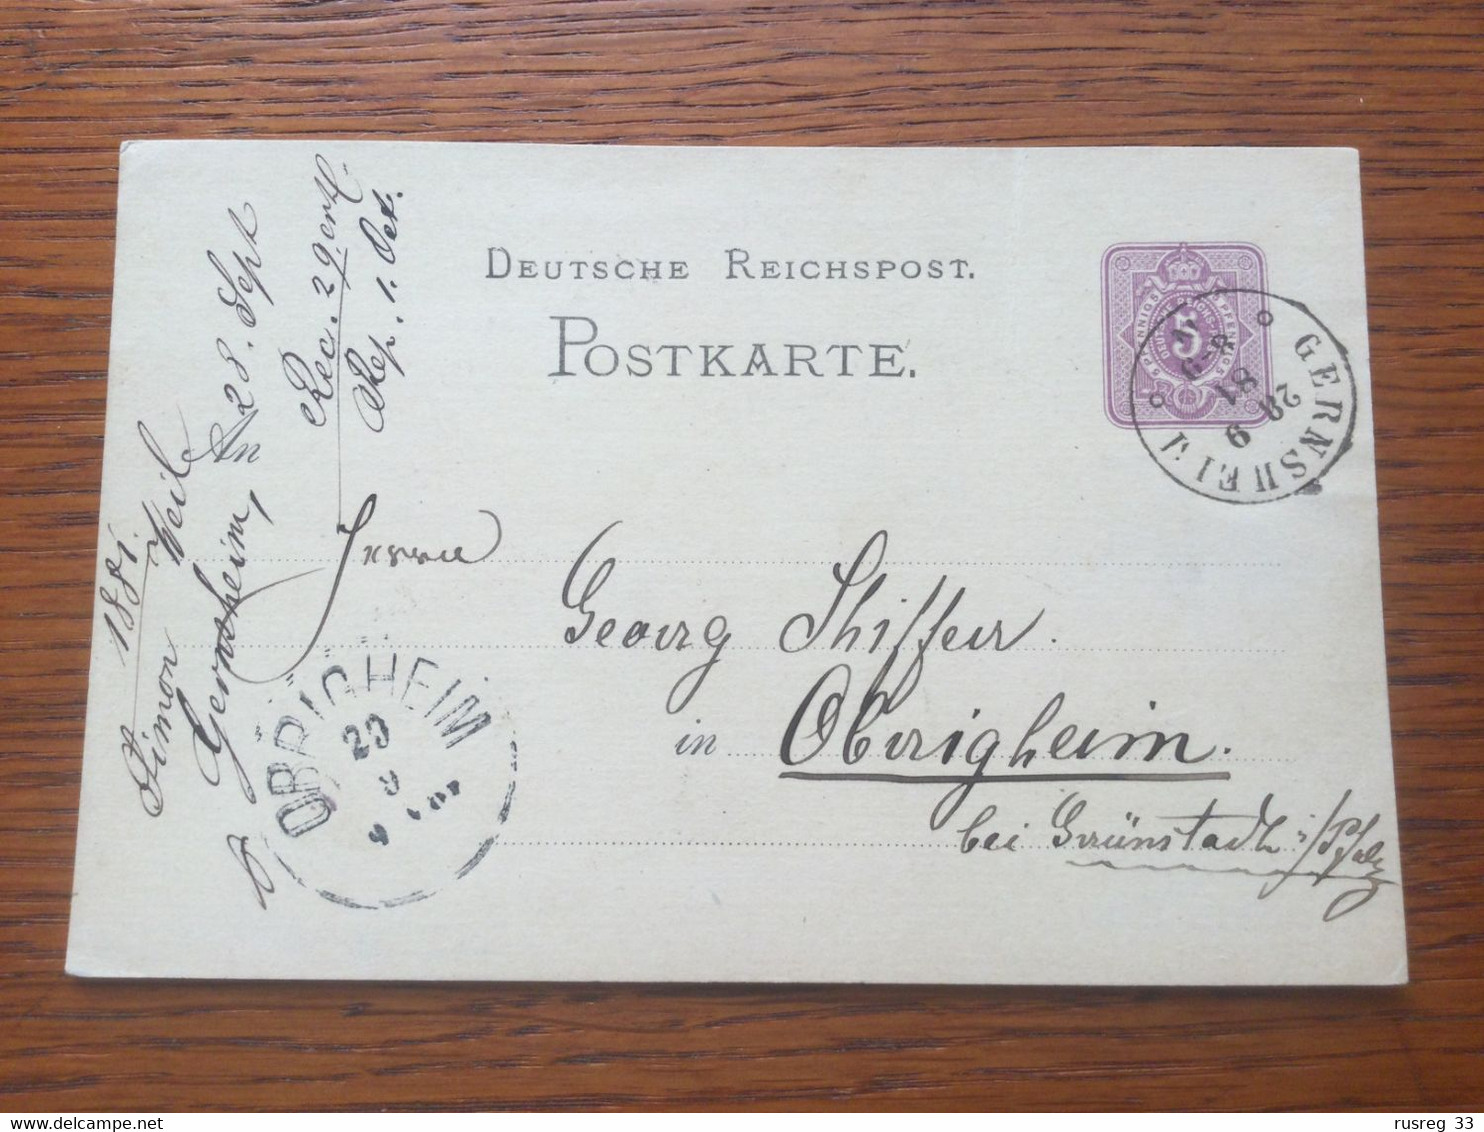 DEUTSCHE REICHSPOST.
POSTKARTE.
5
GERNSHEIM
28 9 81
8-9 V
1881.
Simon Weil
Gernsheim,
An 28. Sept
Rec. 29 
Rep. 1. Oct.
Herrn
Georg Shiffer.
in Obrigheim.
bei Grünstadt i/Pfalz
OBRIGHEIM
29
9
rusreg 33